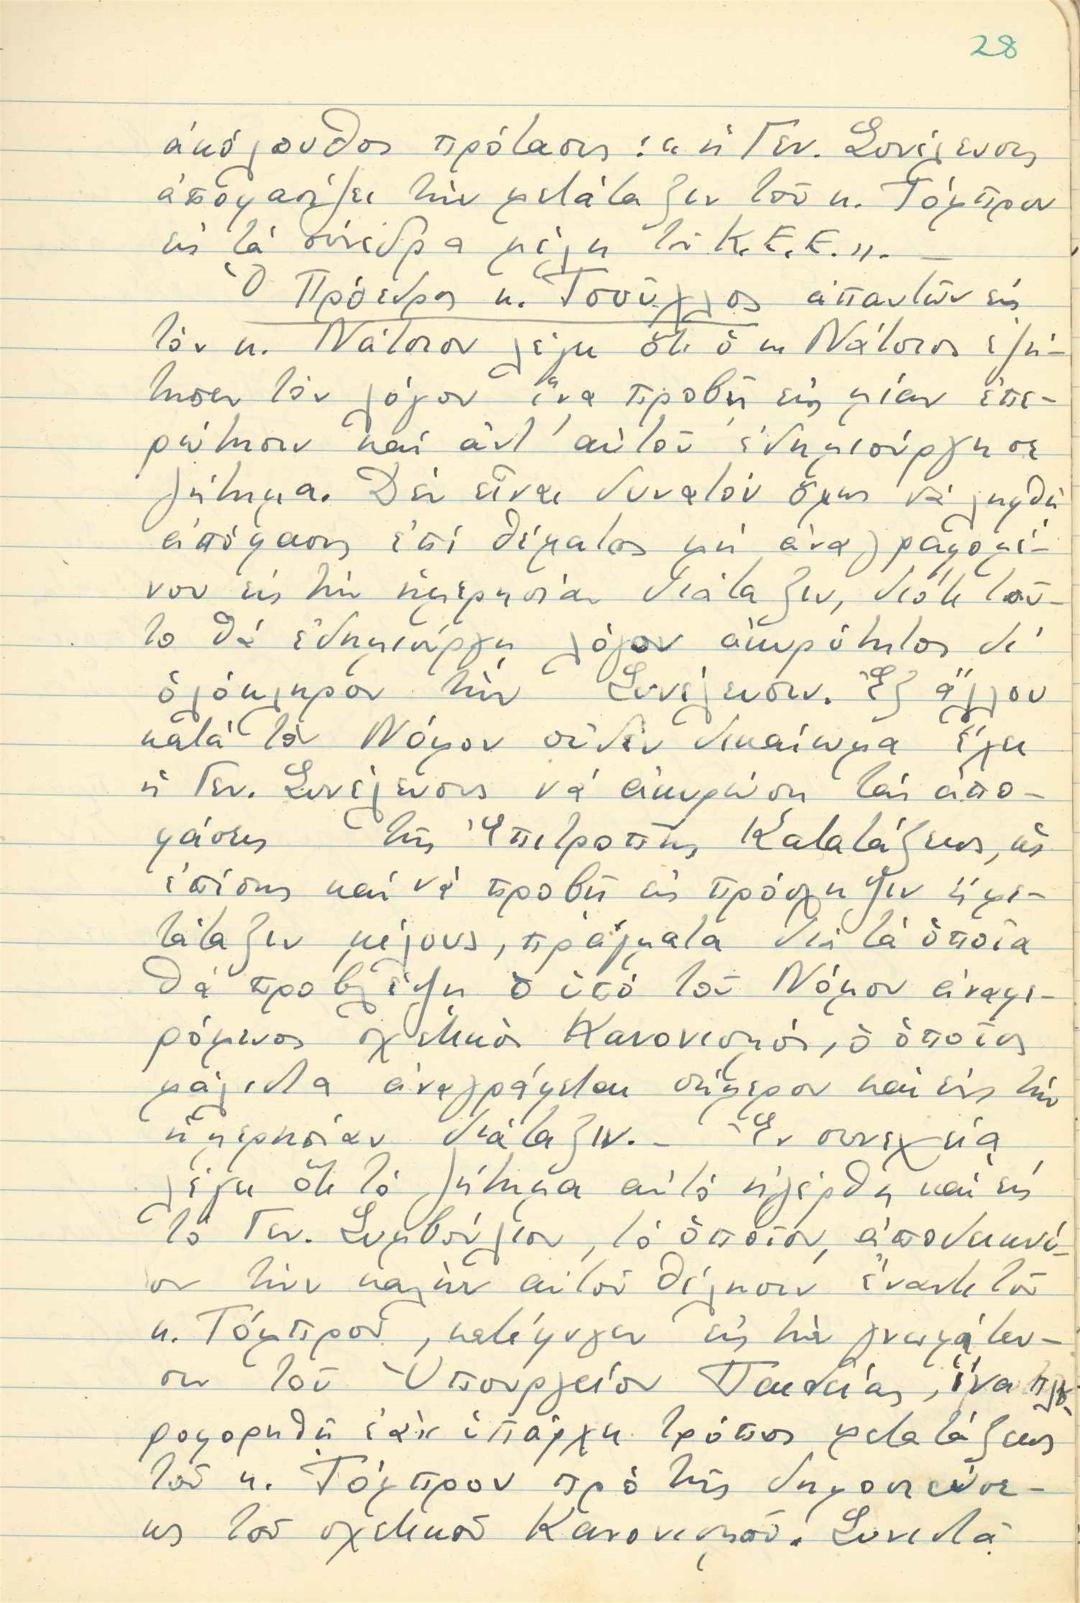 28
ἀκόλουθος πρότασις: «ἡ Γεν. Συνέλευσις
ἀποφασίζει τὴν μετάταξιν τοῦ κ. Τόμπρου
εἰς τὰ σύνεδρα μέλη τοῦ Κ.Ε.Ε.». —
Ὁ Πρόεδρος κ. Τσοῦχλος ἀπαντῶν εἰς
τὸν κ. Νάτσιον λέγει ὅτι ὁ κ. Νάτσιος ἐζή-
τησεν τὸν λόγον ἵνα προβῇ εἰς μίαν ἐπε-
ρώτησιν καὶ ἀντ' αὐτοῦ ἐδημιούργησε
ζήτημα. Δὲν εἶναι δυνατὸν ὅμως νὰ ληφθῇ
ἀπόφασις ἐπὶ θέματος μὴ ἀναγραφομέ-
νου εἰς τὴν ἡμερησίαν διάταξιν, διότι τοῦ-
το θὰ ἐδημιούργη λόγον ἀκυρότητος δι'
ὁλόκληρον τὴν Συνέλευσιν. Ἐξ ἄλλου
κατὰ τὸν Νόμον οὐδὲν δικαίωμα ἔχει
ἡ Γεν. Συνέλευσις νὰ ἀκυρώσῃ τὰς ἀπο-
φάσεις τῆς Ἐπιτροπῆς Κατατάξεως, ὡς
ἐπίσης καὶ νὰ προβῇ εἰς πρόσληψιν ἢ με-
τάταξιν μέλους, πράγματα διὰ τὰ ὁποῖα
θὰ προβλέψῃ ὁ ὑπὸ τοῦ Νόμου ἀναφε-
ρόμενος σχετικὸς Κανονισμός, ὁ ὁποῖος
μάλιστα ἀναγράφεται σήμερον καὶ εἰς τὴν
ἡμερησίαν διάταξιν. — Ἐν συνεχείᾳ
λέγει ὅτι τὸ ζήτημα αὐτὸ ἠγέρθη καὶ εἰς
τὸ Γεν. Συμβούλιον, τὸ ὁποῖον, ἀποδεικνύ-
ον τὴν καλὴν αὐτοῦ θέλησιν ἔναντι τοῦ
κ. Τόμπρου, κατέφυγεν εἰς τὴν γνωμάτευ-
σιν τοῦ Ὑπουργείου Παιδείας, ἵνα πλη-
ροφορηθῇ ἐὰν ὑπάρχῃ τρόπος μετατάξεως
τοῦ κ. Τόμπρου πρὸ τῆς δημοσιεύσε-
ως τοῦ σχετικοῦ Κανονισμοῦ. Συνιστᾷ